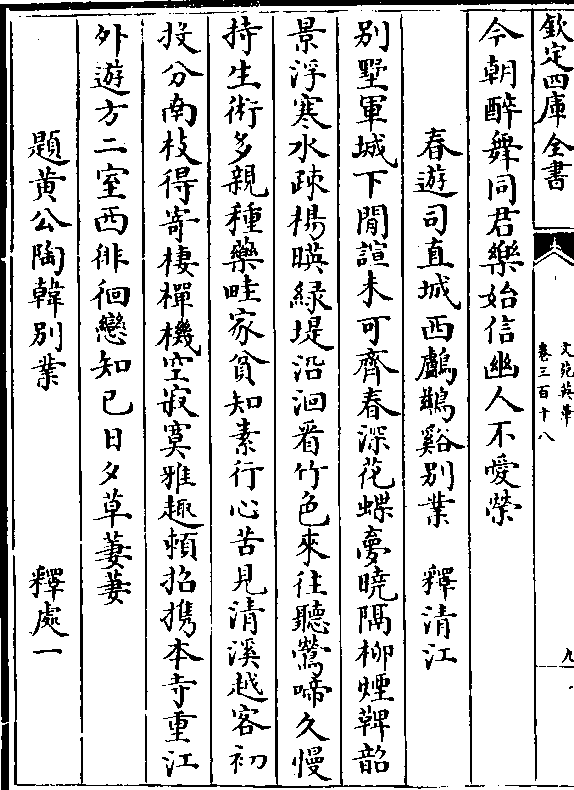 欽定四庫全書
文苑英華
卷三百十八
九
今朝醉舞同君樂始信幽人不愛榮
春遊司直城西鸕鷀谿别業 釋清江
别墅軍城下閒諠未可齊春深花蝶夢曉隔柳煙鞞韶
景浮寒水疎楊暎緑堤沿洄看竹色來往聽鶯啼久慢
持生術多親種藥畦家貧知素行心苦見清溪越客初
投分南枝得寄棲樿機空寂寞雅趣頼招携本寺重江
外遊方二室西徘徊戀知已日夕草萋萋
題黄公陶韓别業 釋處一